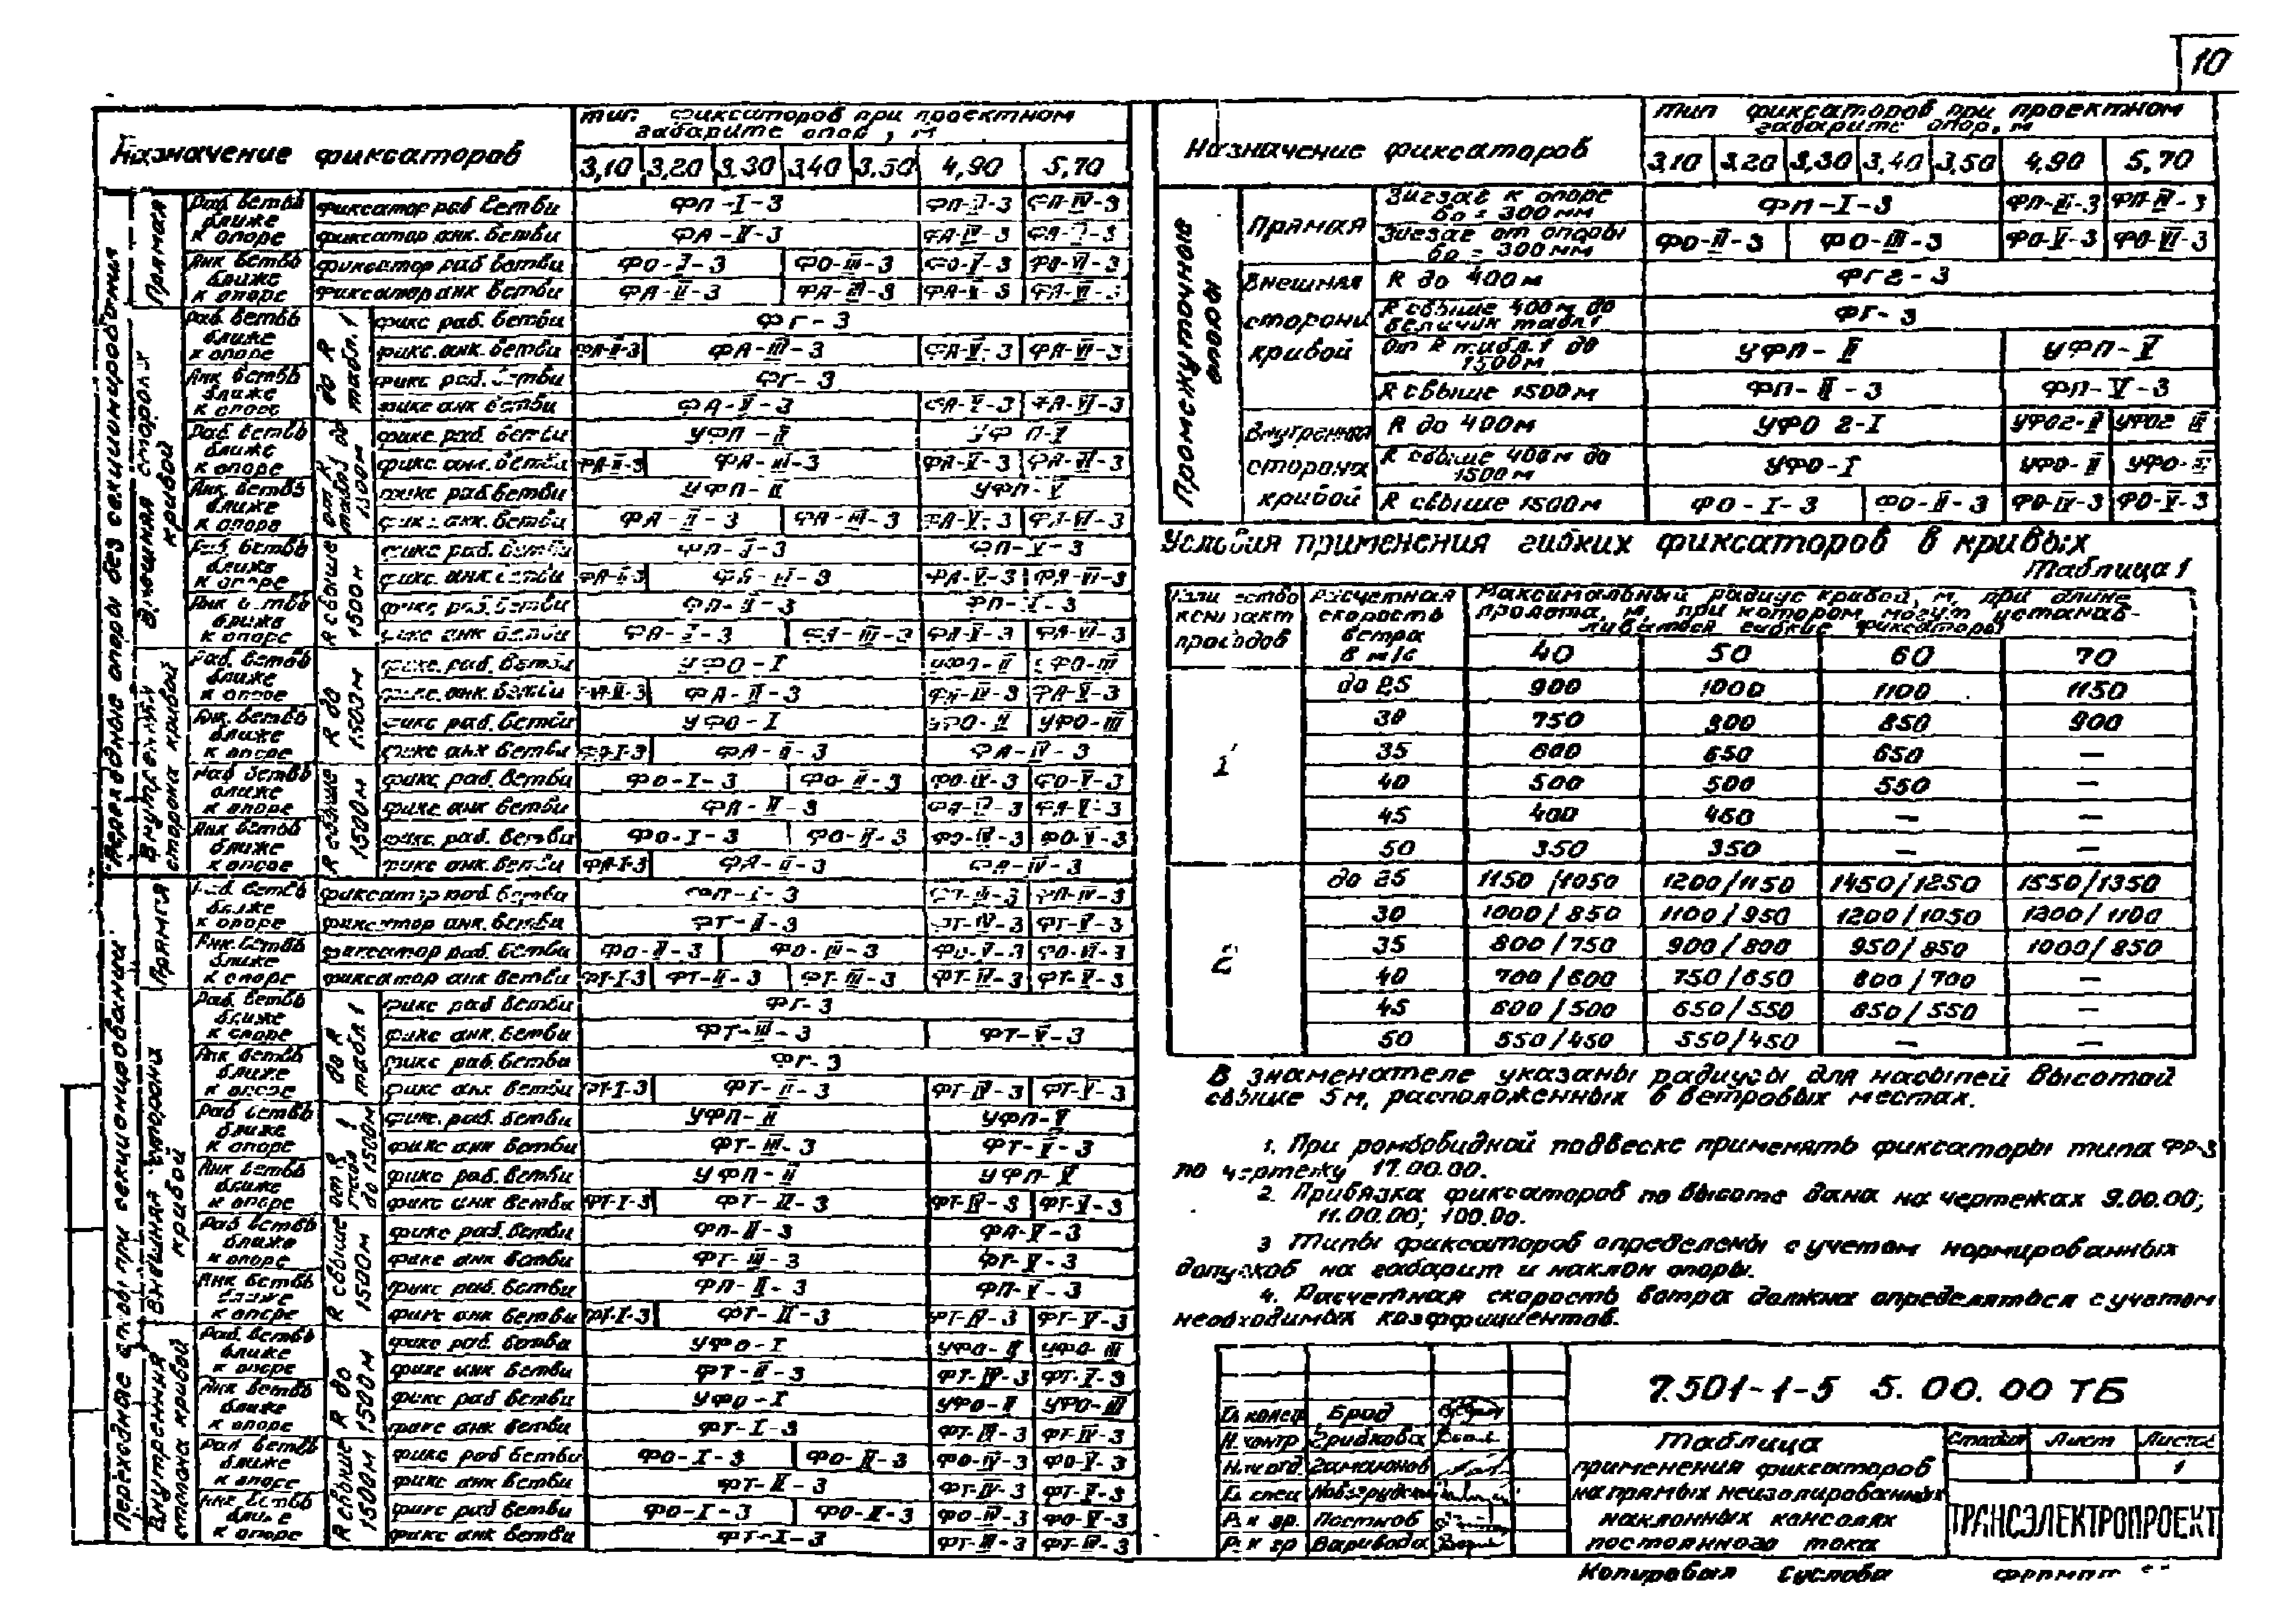 10
Назначение фиксаторов
тип фиксаторов при проектном
габарите опор, м
3,10 3,20 3,30 3,40 3,50 4,90 5,70
Переходные опоры без секционирования
Прямая
Раб ветвь ближе к опоре фиксатор раб ветви ФП-I-3
фиксатор анк. ветви ФА-II-3
Анк ветвь ближе к опоре фиксатор раб ветви ФО-III-3 ФО-V-3 ФО-VI-3
фиксатор анк ветви ФА-II-3 ФА-III-3
Внешняя сторона кривой
до R табл. 1
Раб. ветвь ближе к опоре фикс раб. ветви ФГ-3
фикс. анк. ветви ФА-II-3 ФА-III-3 ФА-V-3 ФА-VI-3
Анк ветвь ближе к опоре фикс раб. ветви ФГ-3
фикс анк ветви ФА-II-3 ФА-V-3 ФА-VI-3
от R табл 1 до 1500м
Раб ветвь ближе к опоре фикс. раб. ветви УФП-II УФП-V
фикс. анк. ветви ФА-II-3 ФА-III-3 ФА-V-3 ФА-VI-3
Анк ветвь ближе к опоре фикс раб ветви УФП-II УФП-V
фикс анк. ветви ФА-II-3 ФА-III-3 ФА-V-3 ФА-VI-3
R свыше 1500м
Раб ветвь ближе к опоре фикс раб. ветви ФП-II-3 ФП-V-3
фикс. анк ветви ФА-II-3 ФА-III-3 ФА-V-3 ФА-VI-3
Анк ветвь ближе к опоре фикс раб. ветви ФП-II-3
фикс анк ветви ФА-III-3 ФА-V-3 ФА-VI-3
Внутренняя сторона кривой
R до 1500м
Раб. ветвь ближе к опоре фикс. раб. ветви УФО-I УФО-II УФО-III
фикс. анк. ветви ФА-II-3 ФА-IV-3 ФА-V-3
Анк. ветвь ближе к опоре фикс раб. ветви УФО-I УФО-II УФО-III
фикс анк ветви ФА-I-3 ФА-II-3 ФА-IV-3
R свыше 1500м
Раб ветвь ближе к опоре фикс раб. ветви ФО-I-3 ФО-II-3 ФО-IV-3 ФО-V-3
фикс анк ветви ФА-II-3 ФА-IV-3 ФА-V-3
Анк ветвь ближе к опоре фикс. раб. ветви ФО-I-3 ФО-II-3 ФО-IV-3 ФО-V-3
фикс анк. ветви ФА-I-3 ФА-II-3 ФА-IV-3
Переходные опоры при секционировании
Прямая
Раб. ветвь ближе к опоре фиксатор раб. ветви ФП-I-3 ФП-IV-3
фиксатор анк. ветви ФТ-II-3 ФТ-IV-3 ФТ-V-3
Анк. ветвь ближе к опоре фиксатор раб. ветви ФО-II-3 ФО-III-3 ФО-V-3 ФО-VI-3
фиксатор анк ветви ФТ-I-3 ФТ-II-3 ФТ-III-3 ФТ-IV-3 ФТ-V-3
Внешняя сторона кривой
до R табл 1
Раб ветвь ближе к опоре фикс раб ветви ФГ-3
фикс анк. ветви ФТ-III-3 ФТ-V-3
Анк ветвь ближе к опоре фикс раб ветви ФГ-3
фикс анк ветви ФТ-I-3 ФТ-II-3 ФТ-IV-3 ФТ-V-3
от R табл 1 до 1500м
Раб ветвь ближе к опоре фикс. раб. ветви УФП-II УФП-V
фикс анк ветви ФТ-III-3 ФТ-V-3
Анк ветвь ближе к опоре фикс раб. ветви УФП-II УФП-V
фикс анк ветви ФТ-I-3 ФТ-II-3 ФТ-IV-3 ФТ-V-3
R свыше 1500м
Раб ветвь ближе к опоре фикс раб. ветви ФП-II-3 ФП-V-3
фикс анк ветви ФТ-III-3 ФТ-V-3
Анк ветвь ближе к опоре фикс раб ветви ФП-II-3 ФП-V-3
фикс анк ветви ФТ-I-3 ФТ-II-3 ФТ-IV-3 ФТ-V-3
Внутренняя сторона кривой
R до 1500м
Раб. ветвь ближе к опоре фикс раб. ветви УФО-I УФО-II УФО-III
фикс анк ветви ФТ-II-3 ФТ-IV-3 ФТ-V-3
Анк ветвь ближе к опоре фикс раб ветви УФО-I УФО-II УФО-III
фикс анк ветви ФТ-I-3 ФТ-III-3 ФТ-IV-3
R свыше 1500м
Раб ветвь ближе к опоре фикс раб ветви ФО-I-3 ФО-II-3 ФО-IV-3 ФО-V-3
фикс анк ветви ФТ-II-3 ФТ-IV-3 ФТ-V-3
Анк ветвь ближе к опоре фикс раб ветви ФО-I-3 ФО-II-3 ФО-IV-3 ФО-V-3
фикс анк ветви ФТ-I-3 ФТ-III-3 ФТ-IV-3
Назначение фиксаторов
Тип фиксаторов при проектном
габарите опор, м
3,10 3,20 3,30 3,40 3,50 4,90 5,70
Промежуточные опоры
Прямая
Зигзаг к опоре бо = 300 мм ФП-I-3 ФП-III-3 ФП-IV-3
Зигзаг от опоры бо = 300 мм ФО-II-3 ФО-III-3 ФО-V-3 ФО-VI-3
Внешняя сторона кривой
R до 400м ФГ2-3
R свыше 400м до величин табл. 1 ФГ-3
От R табл. 1 до 1500м УФП-II УФП-V
R свыше 1500м ФП-II-3 ФП-V-3
Внутренняя сторона кривой
R до 400м УФО 2-I УФО2-II УФО2 III
R свыше 400м до 1500м УФО-I УФО-II УФО-III
R свыше 1500м ФО-I-3 ФО-II-3 ФО-IV-3 ФО-V-3
Условия применения гибких фиксаторов в кривых
Таблица 1
Количество контакт проводов Расчетная скорость ветра в м/с Максимальный радиус кривой, м, при длине
пролета, м, при котором могут устанав-
ливаться гибкие фиксаторы
40 50 60 70
1 до 25 900 1000 1100 1150
30 750 800 850 900
35 600 650 650 —
40 500 500 550 —
45 400 450 — —
50 350 350 — —
2 до 25 1150/1050 1200/1150 1450/1250 1550/1350
30 1000/850 1100/950 1200/1050 1300/1100
35 800/750 900/800 950/850 1000/850
40 700/600 750/650 800/700 —
45 600/500 650/550 650/550 —
50 550/450 550/450 — —
В знаменателе указаны радиусы для насыпей высотой
свыше 5м, расположенных в ветровых местах.
1. При ромбовидной подвеске применять фиксаторы типа ФР-3
по чертежу 17.00.00.
2. Привязка фиксаторов по высоте дана на чертежах 9.00.00;
11.00.00; 100.00.
3 Типы фиксаторов определены с учетом нормированных
допусков на габарит и наклон опоры.
4. Расчетная скорость ветра должна определяться с учетом
необходимых коэффициентов.
7.501-1-5 5.00.00 ТБ
Гл. констр Брод
Н. контр Грибкова
Нач отд.
Гл. спец
Рук гр. Постнов
Рук гр Варивода
Таблица
применения фиксаторов
на прямых неизолированных
наклонных консолях
постоянного тока
Стадия Лист Листов
1
ТРАНСЭЛЕКТРОПРОЕКТ
Копировал Суслова формат